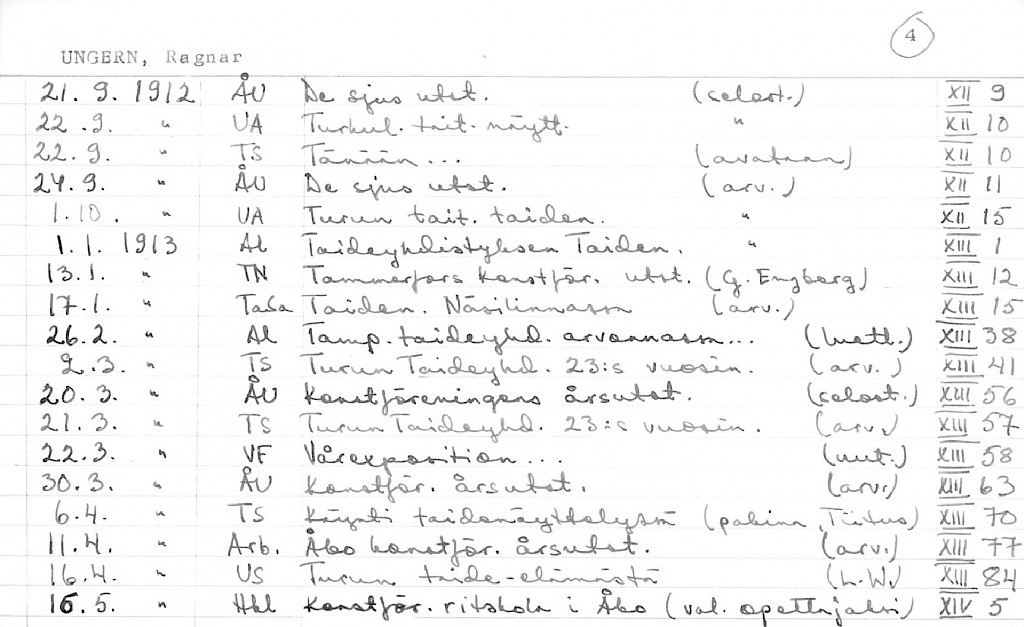 4
UNGERN, Ragnar
21. 9. 1912 ÅU De sjus utst. (selost.) XII 9
22. 9. " UA Turkul. tait. näytt. " XII 10
22. 9. " TS Tänään... (avataan) XII 10
24. 9. " ÅU De sjus utst. (arv.) XII 11
1. 10. " UA Turun tait. taiden. " XII 15
1. 1. 1913 Al Taideyhdistyksen Taiden. " XIII 1
13. 1. " TN Tammerfors Konstför. utst. (G. Engberg) XIII 12
17. 1. " TaSa Taiden. Näsilinnassa (arv.) XIII 15
26. 2. " Al Tamp. taideyhd. arvonnassa... (luett.) XIII 38
2. 3. " TS Turun Taideyhd. 23:s vuosin. (arv.) XIII 41
20. 3. " ÅU Konstföreningens årsutst. (selost.) XIII 56
21. 3. " TS Turun Taideyhd. 23:s vuosin. (arv.) XIII 57
22. 3. " VF Vårexposition... (uut.) XIII 58
30. 3. " ÅU Konstför. årsutst. (arv.) XIII 63
6. 4. " TS Käynti taidenäyttelyssä (pakina, Tiitus) XIII 70
11. 4. " Arb. Åbo konstför. årsutst. (arv.) XIII 77
16. 4. " US Turun taide-elämästä (L.W.) XIII 84
16. 5. " Hbl Konstför. ritskola i Åbo (val. opettajaksi) XIV 5